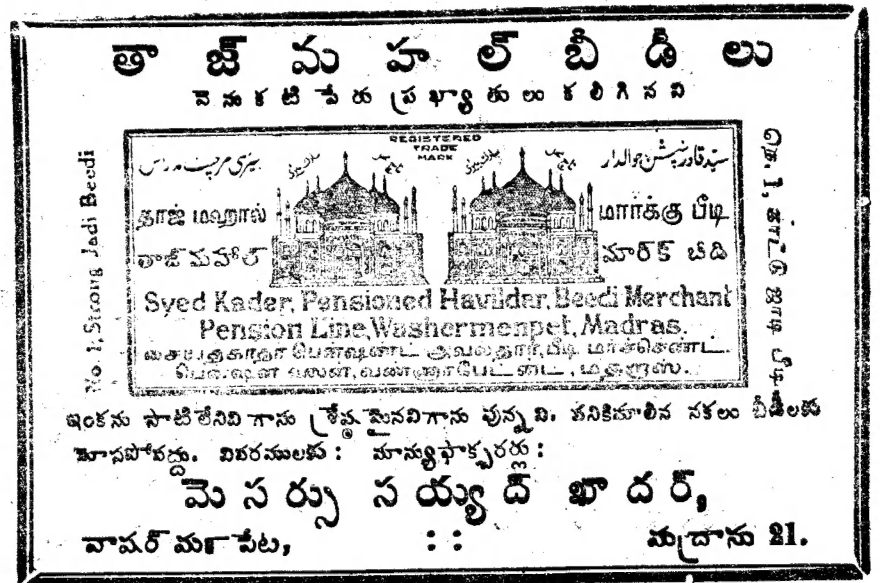 తాజ్ మహల్ బీడీలు
వెనుకటి పేరు ప్రఖ్యాతులు కలిగినవి
No. 1, Strong Jadi Beedi
REGISTERED
TRADE
MARK
سید قادر پنشن حوالدار
بیڑی مرچنٹ مدراس
தாஜ் மஹால் மார்க்கு பீடி
తాజ్ మహాల్ మార్క్ బీడి
Syed Kader, Pensioned Havildar, Beedi Merchant
Pension Line, Washermenpet, Madras.
பென்ஷன் லைன், வண்ணாரபேட்டை, மதராஸ்.
நெ. 1, காட்டு ஜாடி பீடி
ఇంకను సాటిలేనివిగాను శ్రేష్ఠమైనవిగాను వున్నవి. పనికిమాలిన నకలు బీడీలకు
మోసపోవద్దు. వివరములకు : మాన్యుఫాక్చరర్లు :
మెసర్సు సయ్యద్ ఖాదర్,
వాషర్ మన్ పేట, : : మద్రాసు 21.